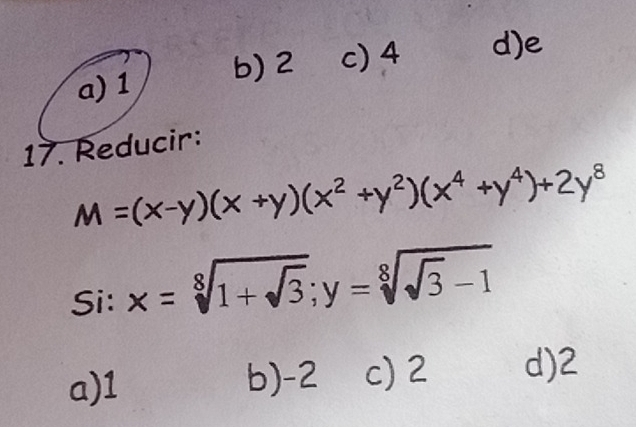 a) 1 b) 2 c) 4 d)e
17. Reducir:
M =(x-y)(x +y)(x² +y²)(x⁴ +y⁴)+2y⁸
Si: x = ⁸√(1+√3); y = ⁸√(√3-1)
a)1 b)-2 c) 2 d)2